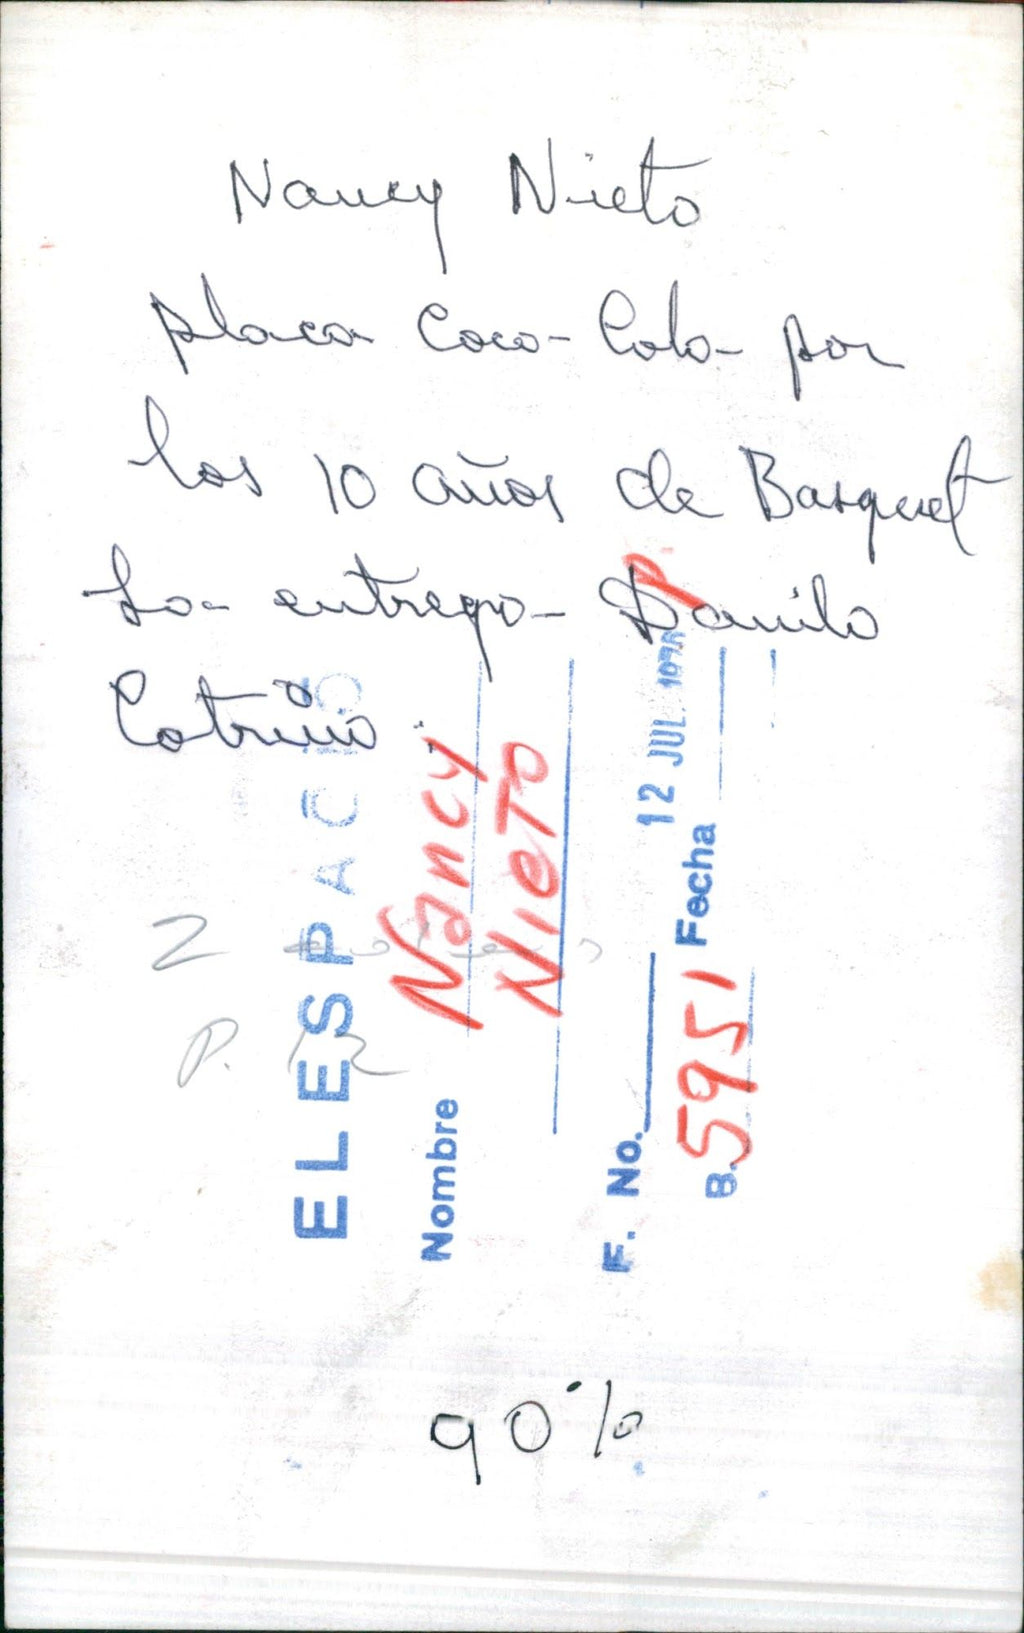 Nancy Nieto
placa Coca-Cola por
los 10 años de Basquet
La entrega Danilo
Cotrino
EL ESPACIO
Nombre Nancy
Nieto
F. No. 12 JUL.
B. 5951 Fecha
P.
2
P. 12
90%